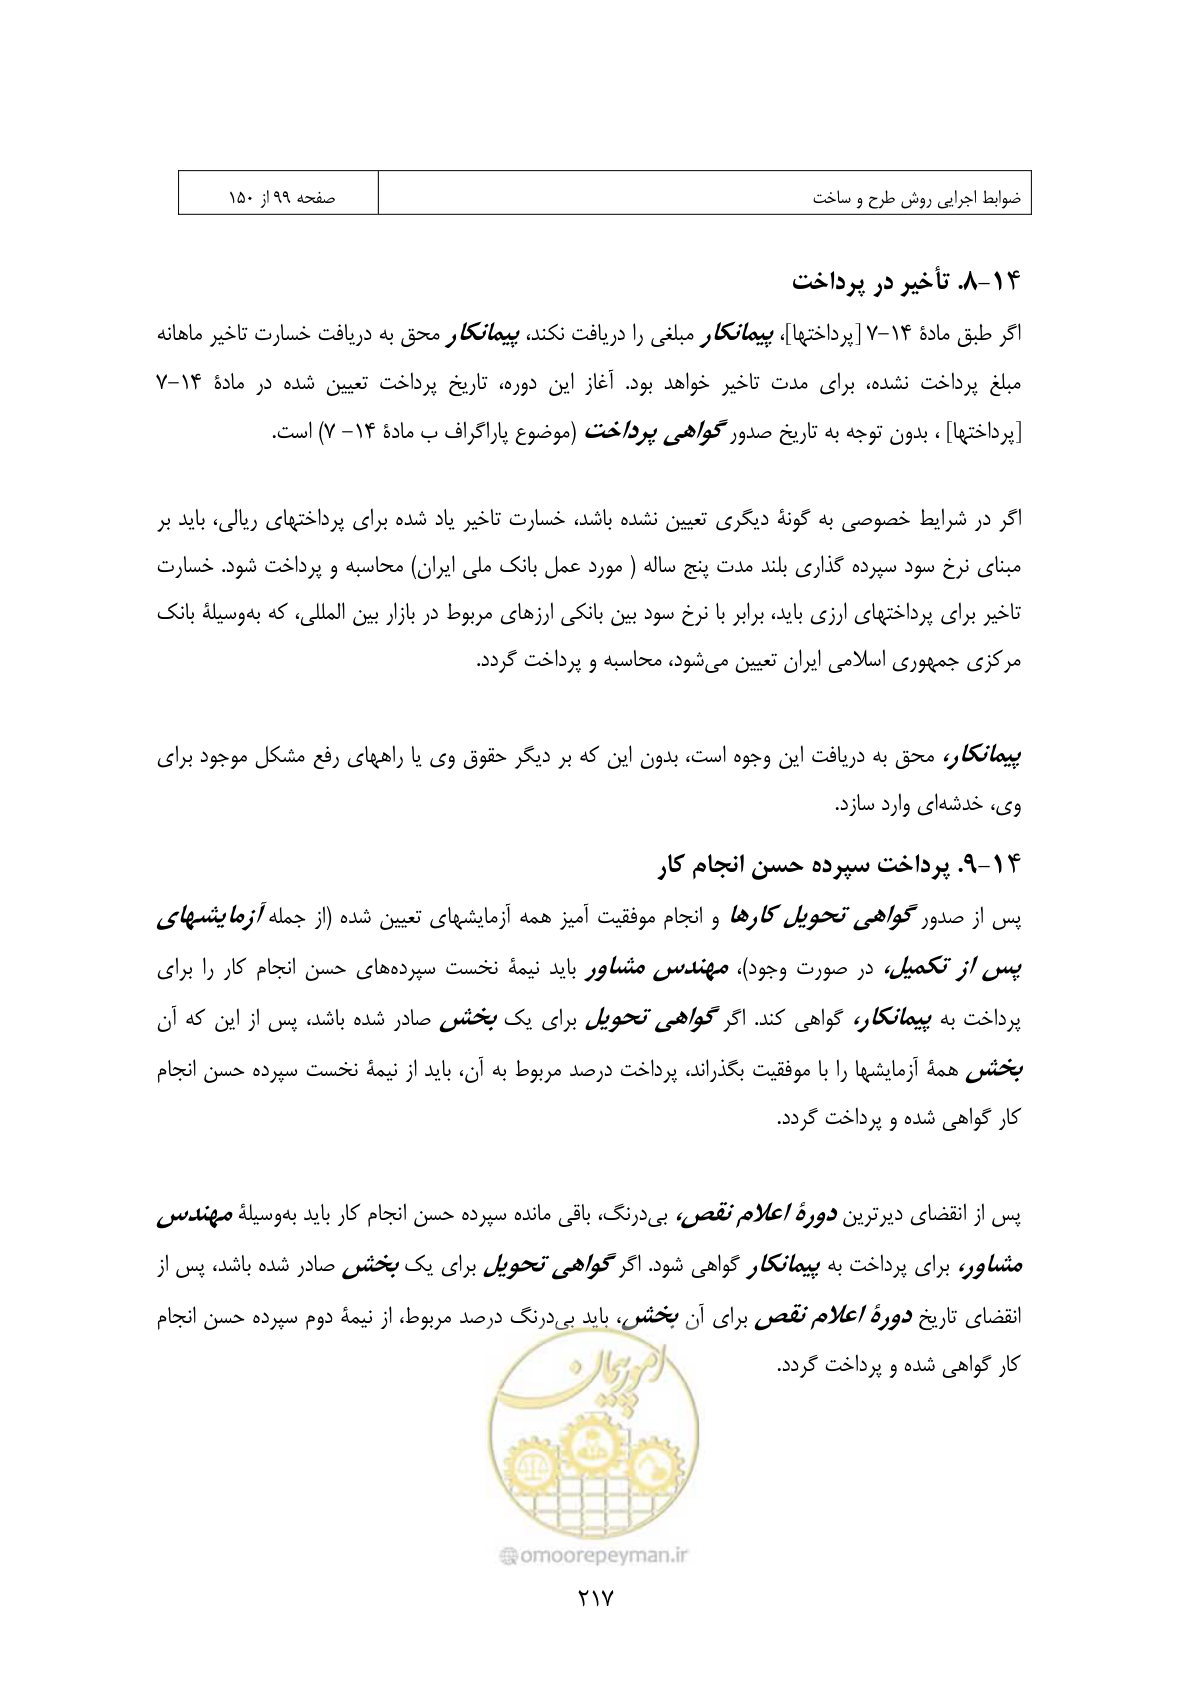 ضوابط اجرایی روش طرح و ساخت
صفحه ۹۹ از ۱۵۰
۱۴-۸. تأخیر در پرداخت
اگر طبق مادۀ ۱۴-۷ [پرداختها]، پیمانکار مبلغی را دریافت نکند، پیمانکار محق به دریافت خسارت تاخیر ماهانه
مبلغ پرداخت نشده، برای مدت تاخیر خواهد بود. آغاز این دوره، تاریخ پرداخت تعیین شده در مادۀ ۱۴-۷
[پرداختها] ، بدون توجه به تاریخ صدور گواهی پرداخت (موضوع پاراگراف ب مادۀ ۱۴- ۷) است.
اگر در شرایط خصوصی به گونۀ دیگری تعیین نشده باشد، خسارت تاخیر یاد شده برای پرداختهای ریالی، باید بر
مبنای نرخ سود سپرده گذاری بلند مدت پنج ساله ( مورد عمل بانک ملی ایران) محاسبه و پرداخت شود. خسارت
تاخیر برای پرداختهای ارزی باید، برابر با نرخ سود بین بانکی ارزهای مربوط در بازار بین المللی، که به‌وسیلۀ بانک
مرکزی جمهوری اسلامی ایران تعیین می‌شود، محاسبه و پرداخت گردد.
پیمانکار، محق به دریافت این وجوه است، بدون این که بر دیگر حقوق وی یا راههای رفع مشکل موجود برای
وی، خدشه‌ای وارد سازد.
۱۴-۹. پرداخت سپرده حسن انجام کار
پس از صدور گواهی تحویل کارها و انجام موفقیت آمیز همه آزمایشهای تعیین شده (از جمله آزمایشهای
پس از تکمیل، در صورت وجود)، مهندس مشاور باید نیمۀ نخست سپرده‌های حسن انجام کار را برای
پرداخت به پیمانکار، گواهی کند. اگر گواهی تحویل برای یک بخش صادر شده باشد، پس از این که آن
بخش همۀ آزمایشها را با موفقیت بگذراند، پرداخت درصد مربوط به آن، باید از نیمۀ نخست سپرده حسن انجام
کار گواهی شده و پرداخت گردد.
پس از انقضای دیرترین دورۀ اعلام نقص، بی‌درنگ، باقی مانده سپرده حسن انجام کار باید به‌وسیلۀ مهندس
مشاور، برای پرداخت به پیمانکار گواهی شود. اگر گواهی تحویل برای یک بخش صادر شده باشد، پس از
انقضای تاریخ دورۀ اعلام نقص برای آن بخش، باید بی‌درنگ درصد مربوط، از نیمۀ دوم سپرده حسن انجام
کار گواهی شده و پرداخت گردد.
امور پیمان
omoorepeyman.ir
۲۱۷